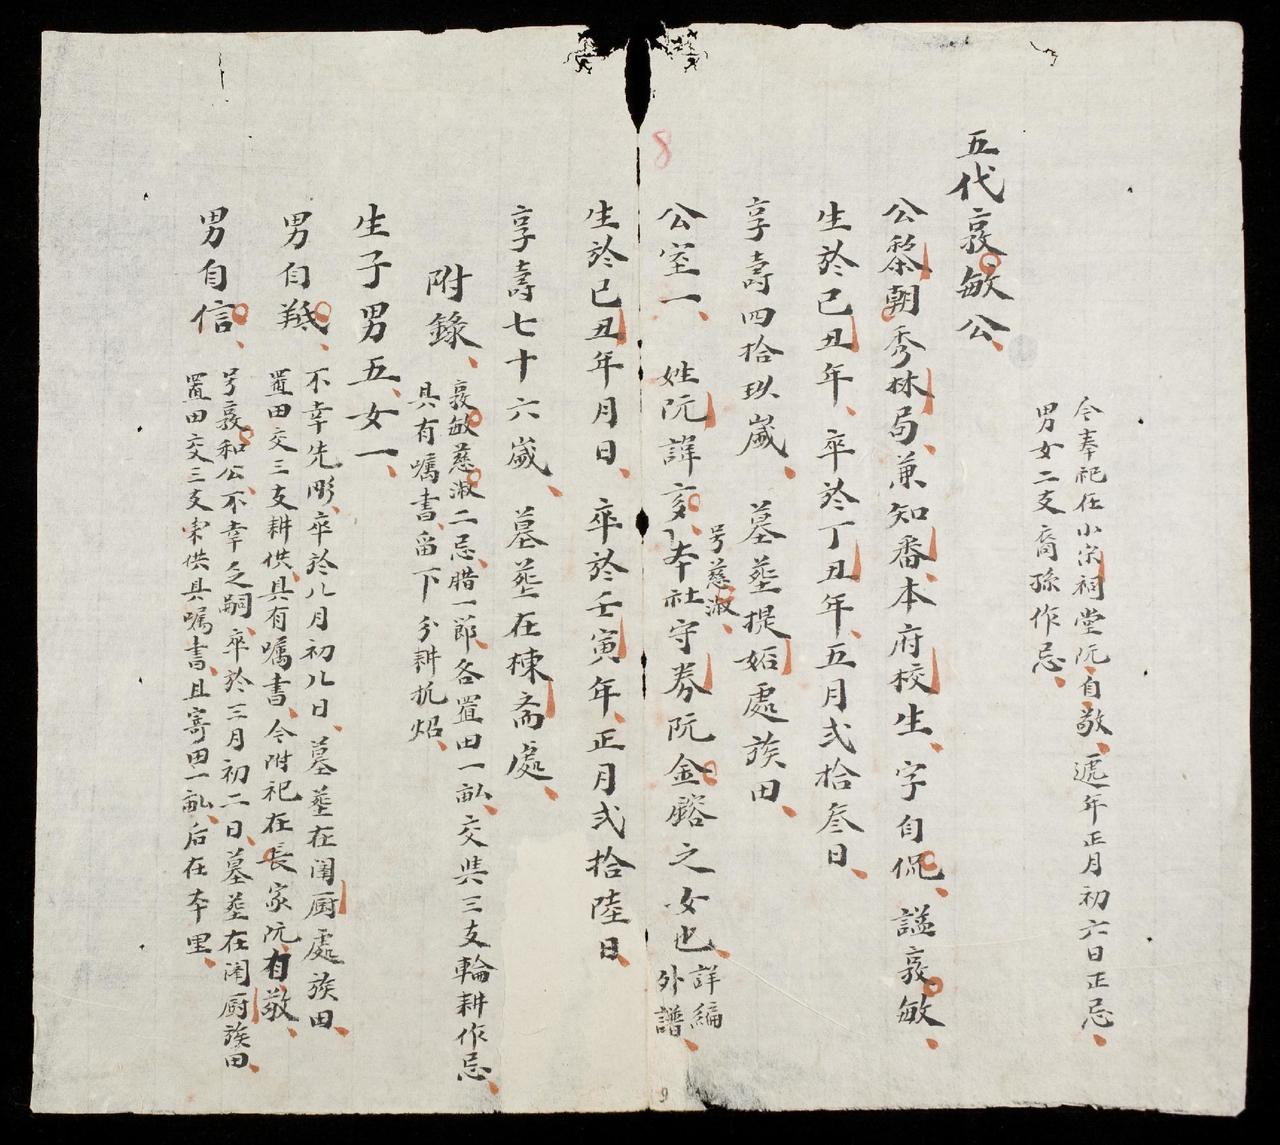 今奉祀在小宗祠堂阮自敬、遞年正月初六日正忌、
男女二支裔孫作忌、
五代敦敏公、
公黎朝秀林局、兼知番、本府校生、字自侃、謚敦敏、
生於己丑年、卒於丁丑年、五月弍拾叁日、
享壽四拾玖歲、墓塟提姤處族田、
公室一、姓阮諱亥、本社守券阮金鎔之女也、
号慈淑、
詳編
外譜、
8
生於己丑年月日、卒於壬寅年、正月弍拾陸日、
享壽七十六歲、墓塟在棟斋處、
附錄、
敦敏慈淑二忌、腊一節、各置田一畝、交與三支輪耕作忌、
具有嘱書、畱下分耕抗炤、
生子男五、女一、
男自羝、
不幸先彫、卒於八月初八日、墓塟在閨厨處族田、
置田交三支耕供、具有嘱書、今附祀在長家阮有敬、
男自信、
号敦和公、不幸乏嗣、卒於三月初二日、墓塟在閨厨族田、
置田交三支耒供具嘱書、且寄田一畝、后在本里、
9